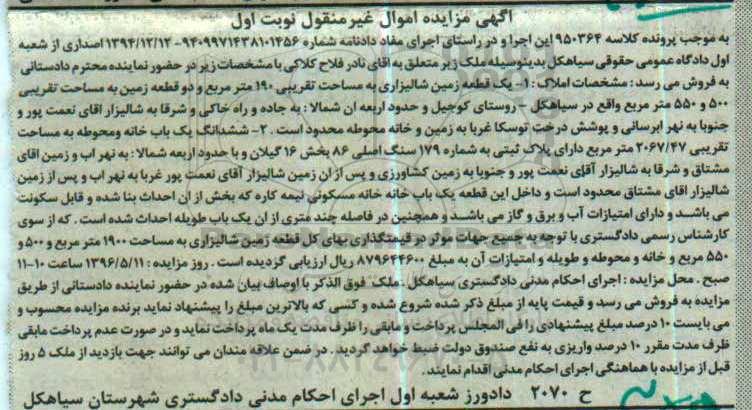 آگهی مزایده اموال غیرمنقول نوبت اول
به موجب پرونده کلاسه ۹۵۰۳۶۴ این اجرا و در راستای اجرای مفاد دادنامه شماره ۹۴۰۹۹۷۱۴۳۸۱۰۱۴۵۶- ۱۳۹۴/۱۲/۱۲ اصداری از شعبه
اول دادگاه عمومی حقوقی سیاهکل بدینوسیله ملک زیر متعلق به اقای نادر فلاح کلاکی با مشخصات زیر در حضور نماینده محترم دادستانی
به فروش می رسد : مشخصات املاک : ۱- یک قطعه زمین شالیزاری به مساحت تقریبی ۱۹۰ متر مربع و دو قطعه زمین به مساحت تقریبی
۵۰۰ و ۵۵۰ متر مربع واقع در سیاهکل – روستای کوجیل و حدود اربعه ان شمالا : به جاده و راه خاکی و شرقا به شالیزار اقای نعمت پور و
جنوبا به نهر ابرسانی و پوشش درخت توسکا غربا به زمین و خانه محوطه محدود است . ۲- ششدانگ یک باب خانه ومحوطه به مساحت
تقریبی ۲۰۶۷/۴۷ متر مربع دارای پلاک ثبتی به شماره ۱۷۹ سنگ اصلی ۸۶ بخش ۱۶ گیلان و با حدود اربعه شمالا : به نهر اب و زمین اقای
مشتاق و شرقا به شالیزار آقای نعمت پور و جنوبا به زمین کشاورزی و پس از ان زمین شالیزار آقای نعمت پور غربا به نهر اب و پس از زمین
شالیزار اقای مشتاق محدود است و داخل این قطعه یک باب خانه خانه مسکونی نیمه کاره که بخش از ان احداث بنا شده و قابل سکونت
می باشد و دارای امتیازات آب و برق و گاز می باشد و همچنین در فاصله چند متری از ان یک باب طویله احداث شده است . که از سوی
کارشناس رسمی دادگستری با توجه به جمیع جهات موثر در قیمتگذاری بهای کل قطعه زمین شالیزاری به مساحت ۱۹۰۰ متر مربع و ۵۰۰ و
۵۵۰ مربع و خانه و محوطه و طویله و امتیازات آن به مبلغ ۸۷۹۶۴۴۶۰۰ ریال ارزیابی گردیده است . روز مزایده : ۱۳۹۶/۵/۱۱ ساعت ۱۰-۱۱
صبح . محل مزایده : اجرای احکام مدنی دادگستری سیاهکل . ملک فوق الذکر با اوصاف بیان شده در حضور نماینده دادستانی از طریق
مزایده به فروش می رسد و قیمت پایه از مبلغ ذکر شده شروع شده و کسی که بالاترین مبلغ را پیشنهاد نماید برنده مزایده محسوب و
می بایست ۱۰ درصد مبلغ پیشنهادی را فی المجلس پرداخت و مابقی را ظرف مدت یک ماه پرداخت نماید و در صورت عدم پرداخت مابقی
ظرف مدت مقرر ۱۰ درصد واریزی به نفع صندوق دولت ضبط خواهد گردید . در ضمن علاقه مندان می توانند جهت بازدید از ملک ۵ روز
قبل از مزایده با هماهنگی اجرای احکام مدنی اقدام نمایند.
ح ۲۰۷۰ دادورز شعبه اول اجرای احکام مدنی دادگستری شهرستان سیاهکل